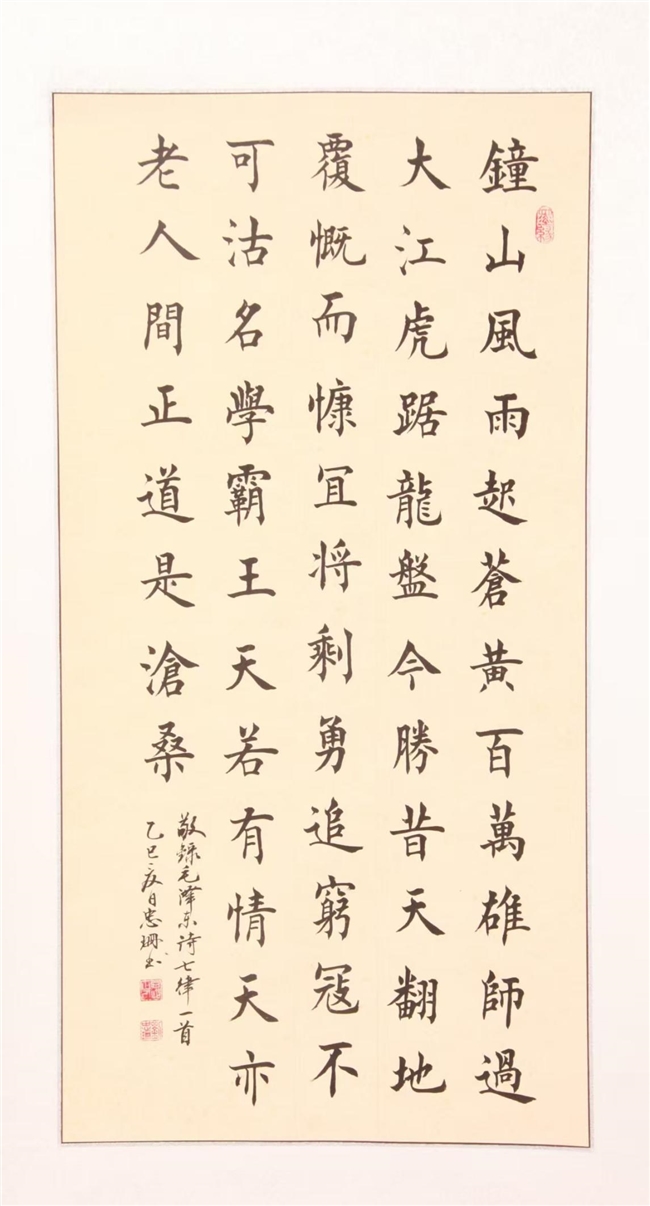 鐘山風雨起蒼黃百萬雄師過
大江虎踞龍盤今勝昔天翻地
覆慨而慷冝将剩勇追窮冦不
可沽名學霸王天若有情天亦
老人間正道是滄桑
敬録毛泽东诗七律一首
乙巳夏日忠珊书